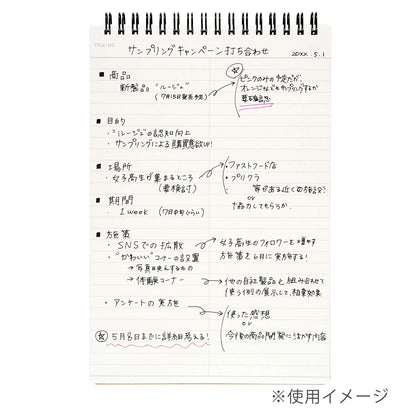 サンプリングキャンペーン打ち合わせ 20XX.5.1
■ 商品
新製品 "ルージュ"
(7月15日発売予定)
ピンクのみの予定だが、
オレンジなども
要確認
■ 目的
・"ルージュ"の認知向上
・サンプリングによる購買意欲UP!
■ 場所
・女子高生が集まるところ
(要検討)
・ファストフード店
・プリクラ
or
協力してもらうか
■ 期間
・1week (7日中旬くらい)
■ 方策
・SNSでの拡散
女子高生のフォロワーを増やす
方策を6月に実施する!
・"かわいい"コーナーの設置
→写真映えするもの
→体験コーナー
他の自社製品と組み合わせて
使う例の展示して、相乗効果
・アンケートの実施
使った感想
or
今後の商品開発に活かす内容
5月8日までに詳細考える!
※使用イメージ